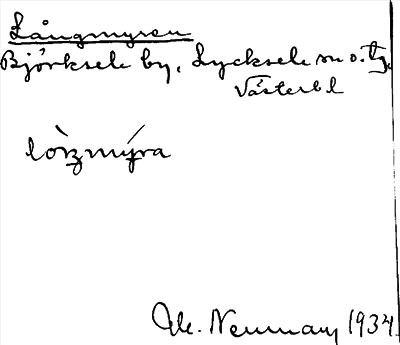 Långmyran
Björksele by, Lycksele sn o. tg,
Västerbl
lòŋmýra
Neuman 1934.